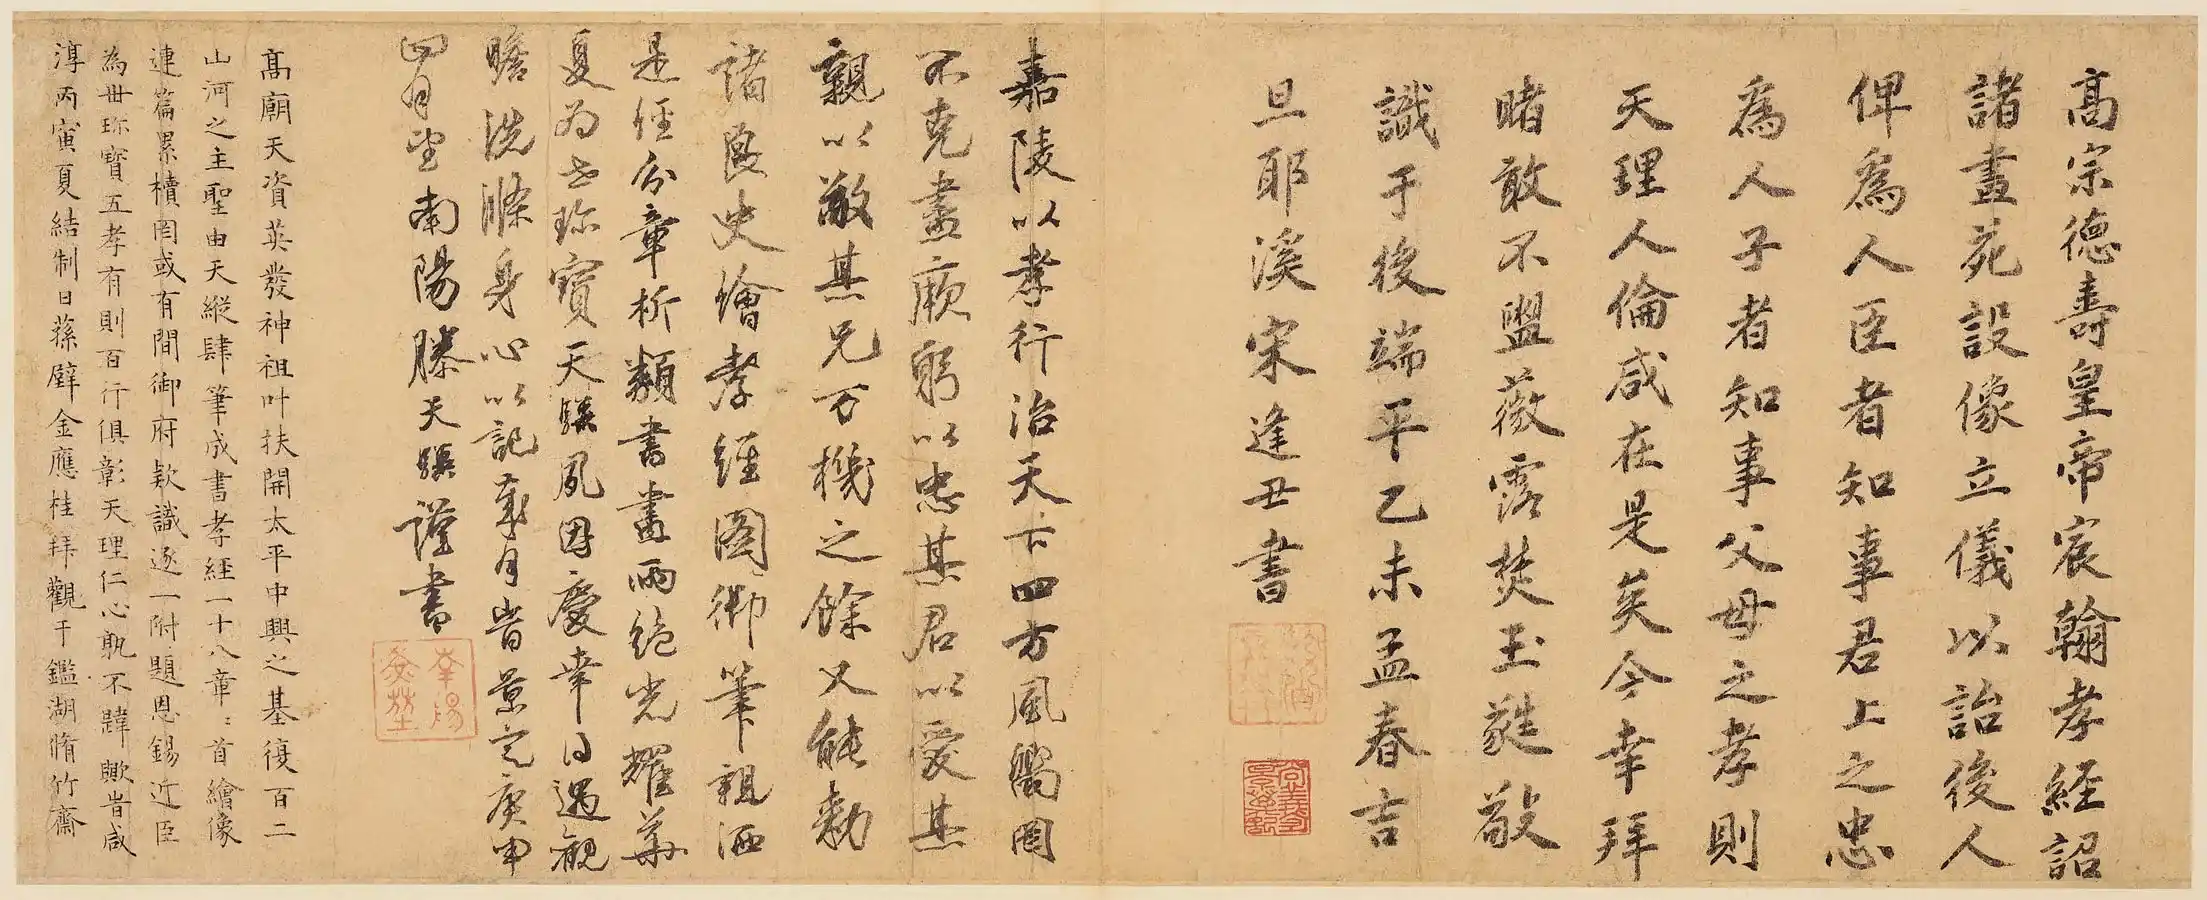 高宗德壽皇帝宸翰孝經詔
諸畫苑設像立儀以詒後人
俾為人臣者知事君上之忠
為人子者知事父母之孝則
天理人倫咸在是矣今幸拜
睹敢不盥薇露焚玉蕤敬
識于後端平乙未孟春吉
旦耶溪宋逢丑書
嘉陵以孝行治天下四方風嚮罔
不克盡厥躬以忠其君以愛其
親以敬其兄万機之餘又能勅
諸良史繪孝經圖御筆親洒
是經分章析類書畫兩絕光耀華
夏為世珍寶天驥夙因慶幸得遇觀
瞻洗滌身心以記歲月旹景定庚申
四月望南陽滕天驥謹書
高廟天資英發神祖叶扶開太平中興之基復百二
山河之主聖由天縱肆筆成書孝經一十八章:首繪像
連篇累櫝罔或有間御府款識逐一附題恩錫近臣
為世珍寶五孝有則百行俱彰天理仁心孰不韙歟旹咸
淳丙寅夏結制日蓀壁金應桂拜觀于鑑湖脩竹齋